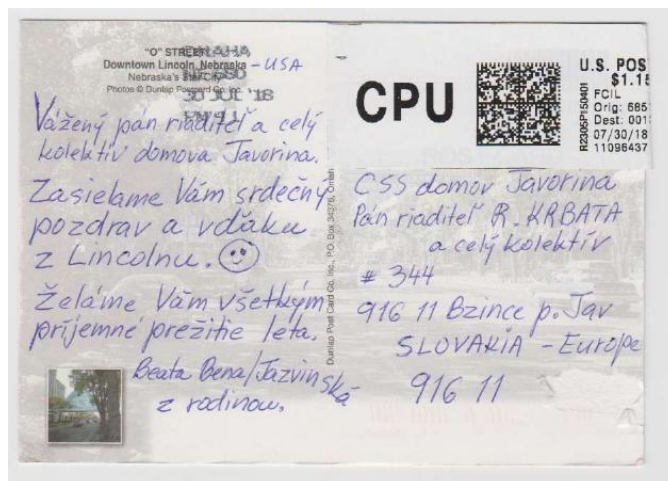 "O" STREET
Downtown Lincoln, Nebraska - USA
Nebraska's
Photos © Dunlap Postcard Co. Inc.
OMAHA
30 JUL '18
Vážený pán riaditeľ a celý
kolektív domova Javorina.
Zasielame Vám srdečný
pozdrav a vďaku
z Lincolnu.
Želáme Vám všetkým
príjemné prežitie leta.
Beata Bena/Jazvinská
z rodinou.
Dunlap Post Card Co. Inc., P.O. Box 34376, Omah
CPU
U.S. POS
$1.15
FCIL
Orig: 685
Dest: 001
07/30/18
11096437
R2305P150401
CSS domov Javorina
Pán riaditeľ R. KRBATA
a celý kolektív
# 344
916 11 Bzince p. Jav
SLOVAKIA - Europe
916 11